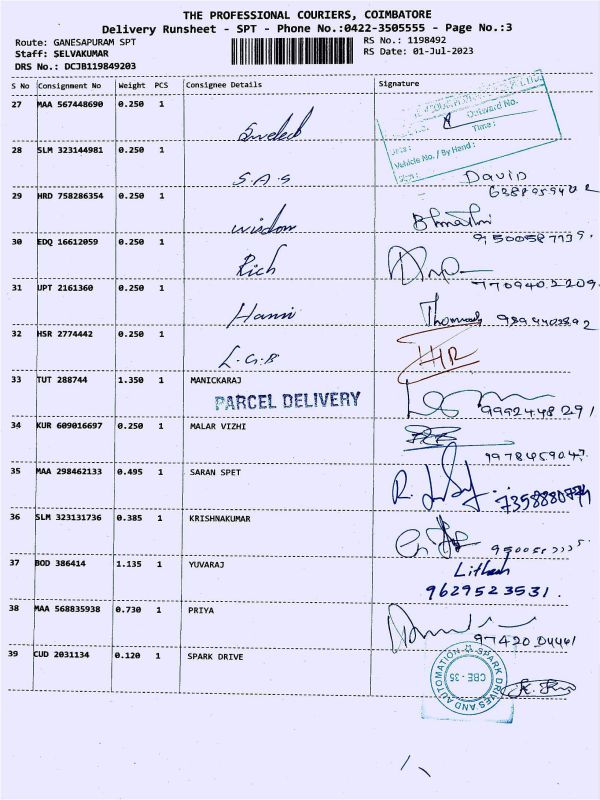 THE PROFESSIONAL COURIERS, COIMBATORE
Delivery Runsheet - SPT - Phone No.:0422-3505555 - Page No.:3
Route: GANESAPURAM SPT
RS No.: 1198492
Staff: SELVAKUMAR
RS Date: 01-Jul-2023
DRS No.: DCJB119849203
S No Consignment No Weight PCS Consignee Details Signature
27 MAA 567448690 0.250 1
Outward No.
Time:
Vehicle No. / By Hand:
28 SLM 323144981 0.250 1 S.A.S David
29 HRD 758286354 0.250 1 Wisdom
30 EDQ 16612059 0.250 1 Rich
31 UPT 2161360 0.250 1 Hanni
32 HSR 2774442 0.250 1 L.G.B
33 TUT 288744 1.350 1 MANICKARAJ
PARCEL DELIVERY
9992448291
34 KUR 609016697 0.250 1 MALAR VIZHI
35 MAA 298462133 0.495 1 SARAN SPET
36 SLM 323131736 0.385 1 KRISHNAKUMAR
37 BOD 386414 1.135 1 YUVARAJ
9629523531.
38 MAA 568835938 0.730 1 PRIYA
39 CUD 2031134 0.120 1 SPARK DRIVE
SPARK DRIVES AND AUTOMATION
CBE - 35